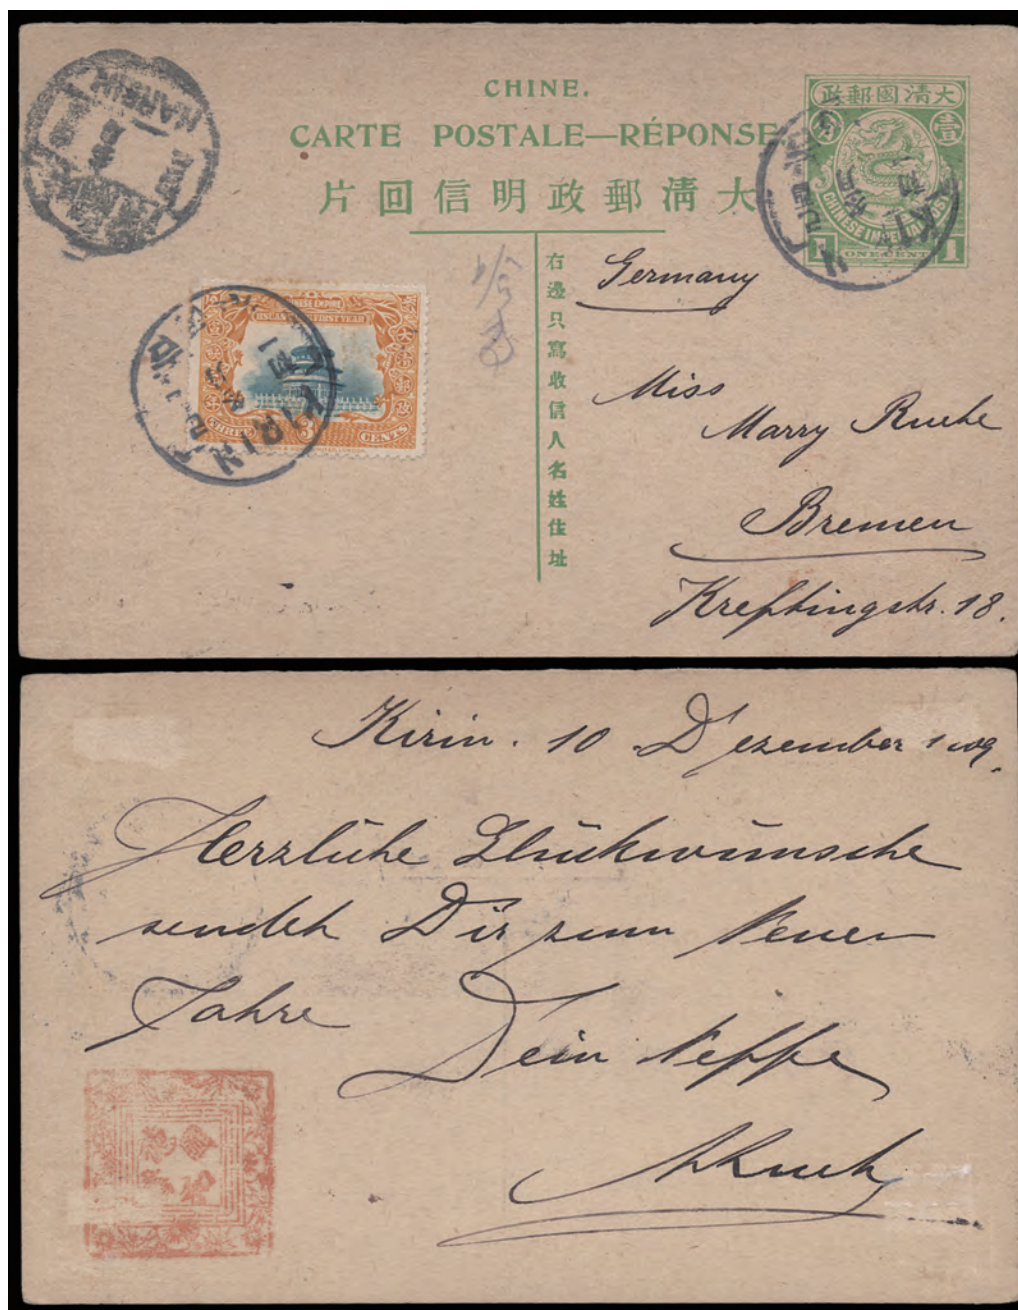 CHINE.
CARTE POSTALE—RÉPONSE
大清郵政明信回片
大清國郵政
壹
CHINESE IMPERIAL POST
1 ONE CENT 1
右邊只寫收信人名姓住址
HARBIN
CHINESE EMPIRE
FIRST YEAR
3 CENTS
KIRIN
KIRIN
Germany
Miss
Marry Ruehe
Bremen
Kreftingstr. 18.
Kirin. 10 Dezember 1909.
Herzliche Glückwünsche
sendet Dir zum Neuen
Jahre
Dein Neffe